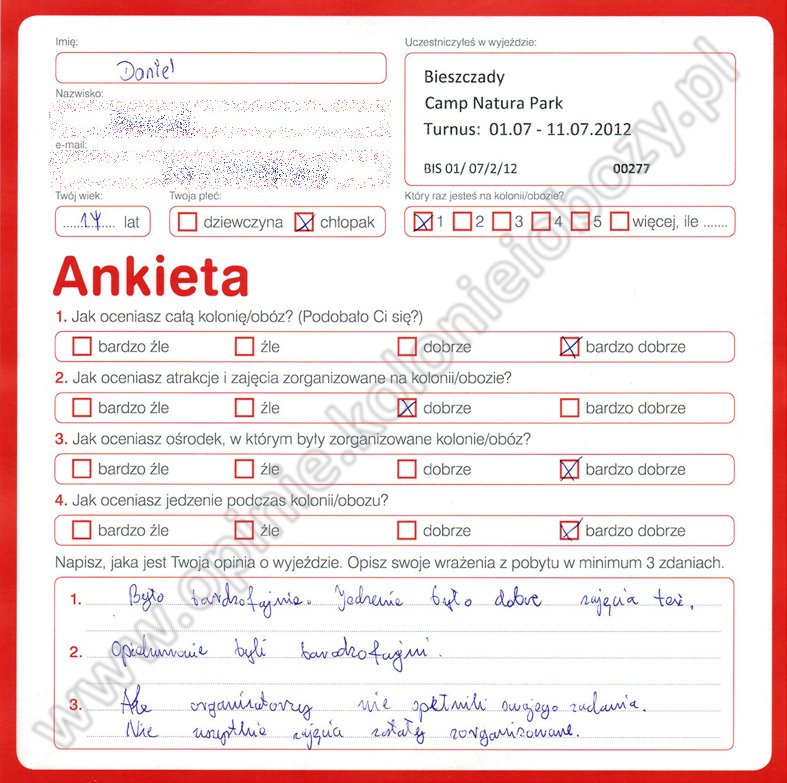 Imię:
Daniel
Uczestniczyłeś w wyjeździe:
Bieszczady
Camp Natura Park
Turnus: 01.07 - 11.07.2012
BIS 01/ 07/2/12 00277
Nazwisko:
e-mail:
Twój wiek:
14 lat
Twoja płeć:
dziewczyna chłopak
Który raz jesteś na kolonii/obozie?
1 2 3 4 5 więcej, ile .......
Ankieta
1. Jak oceniasz całą kolonię/obóz? (Podobało Ci się?)
bardzo źle źle dobrze bardzo dobrze
2. Jak oceniasz atrakcje i zajęcia zorganizowane na kolonii/obozie?
bardzo źle źle dobrze bardzo dobrze
3. Jak oceniasz ośrodek, w którym były zorganizowane kolonie/obóz?
bardzo źle źle dobrze bardzo dobrze
4. Jak oceniasz jedzenie podczas kolonii/obozu?
bardzo źle źle dobrze bardzo dobrze
Napisz, jaka jest Twoja opinia o wyjeździe. Opisz swoje wrażenia z pobytu w minimum 3 zdaniach.
1. Było bardzo fajnie. Jedzenie było dobre zajęcia też.
2. Opiekunowie byli bardzo fajni.
3. Ale organizatorzy nie spełnili swojego zadania.
Nie wszystkie zajęcia zostały zorganizowane.
www.opinie.kolonieiobozy.pl